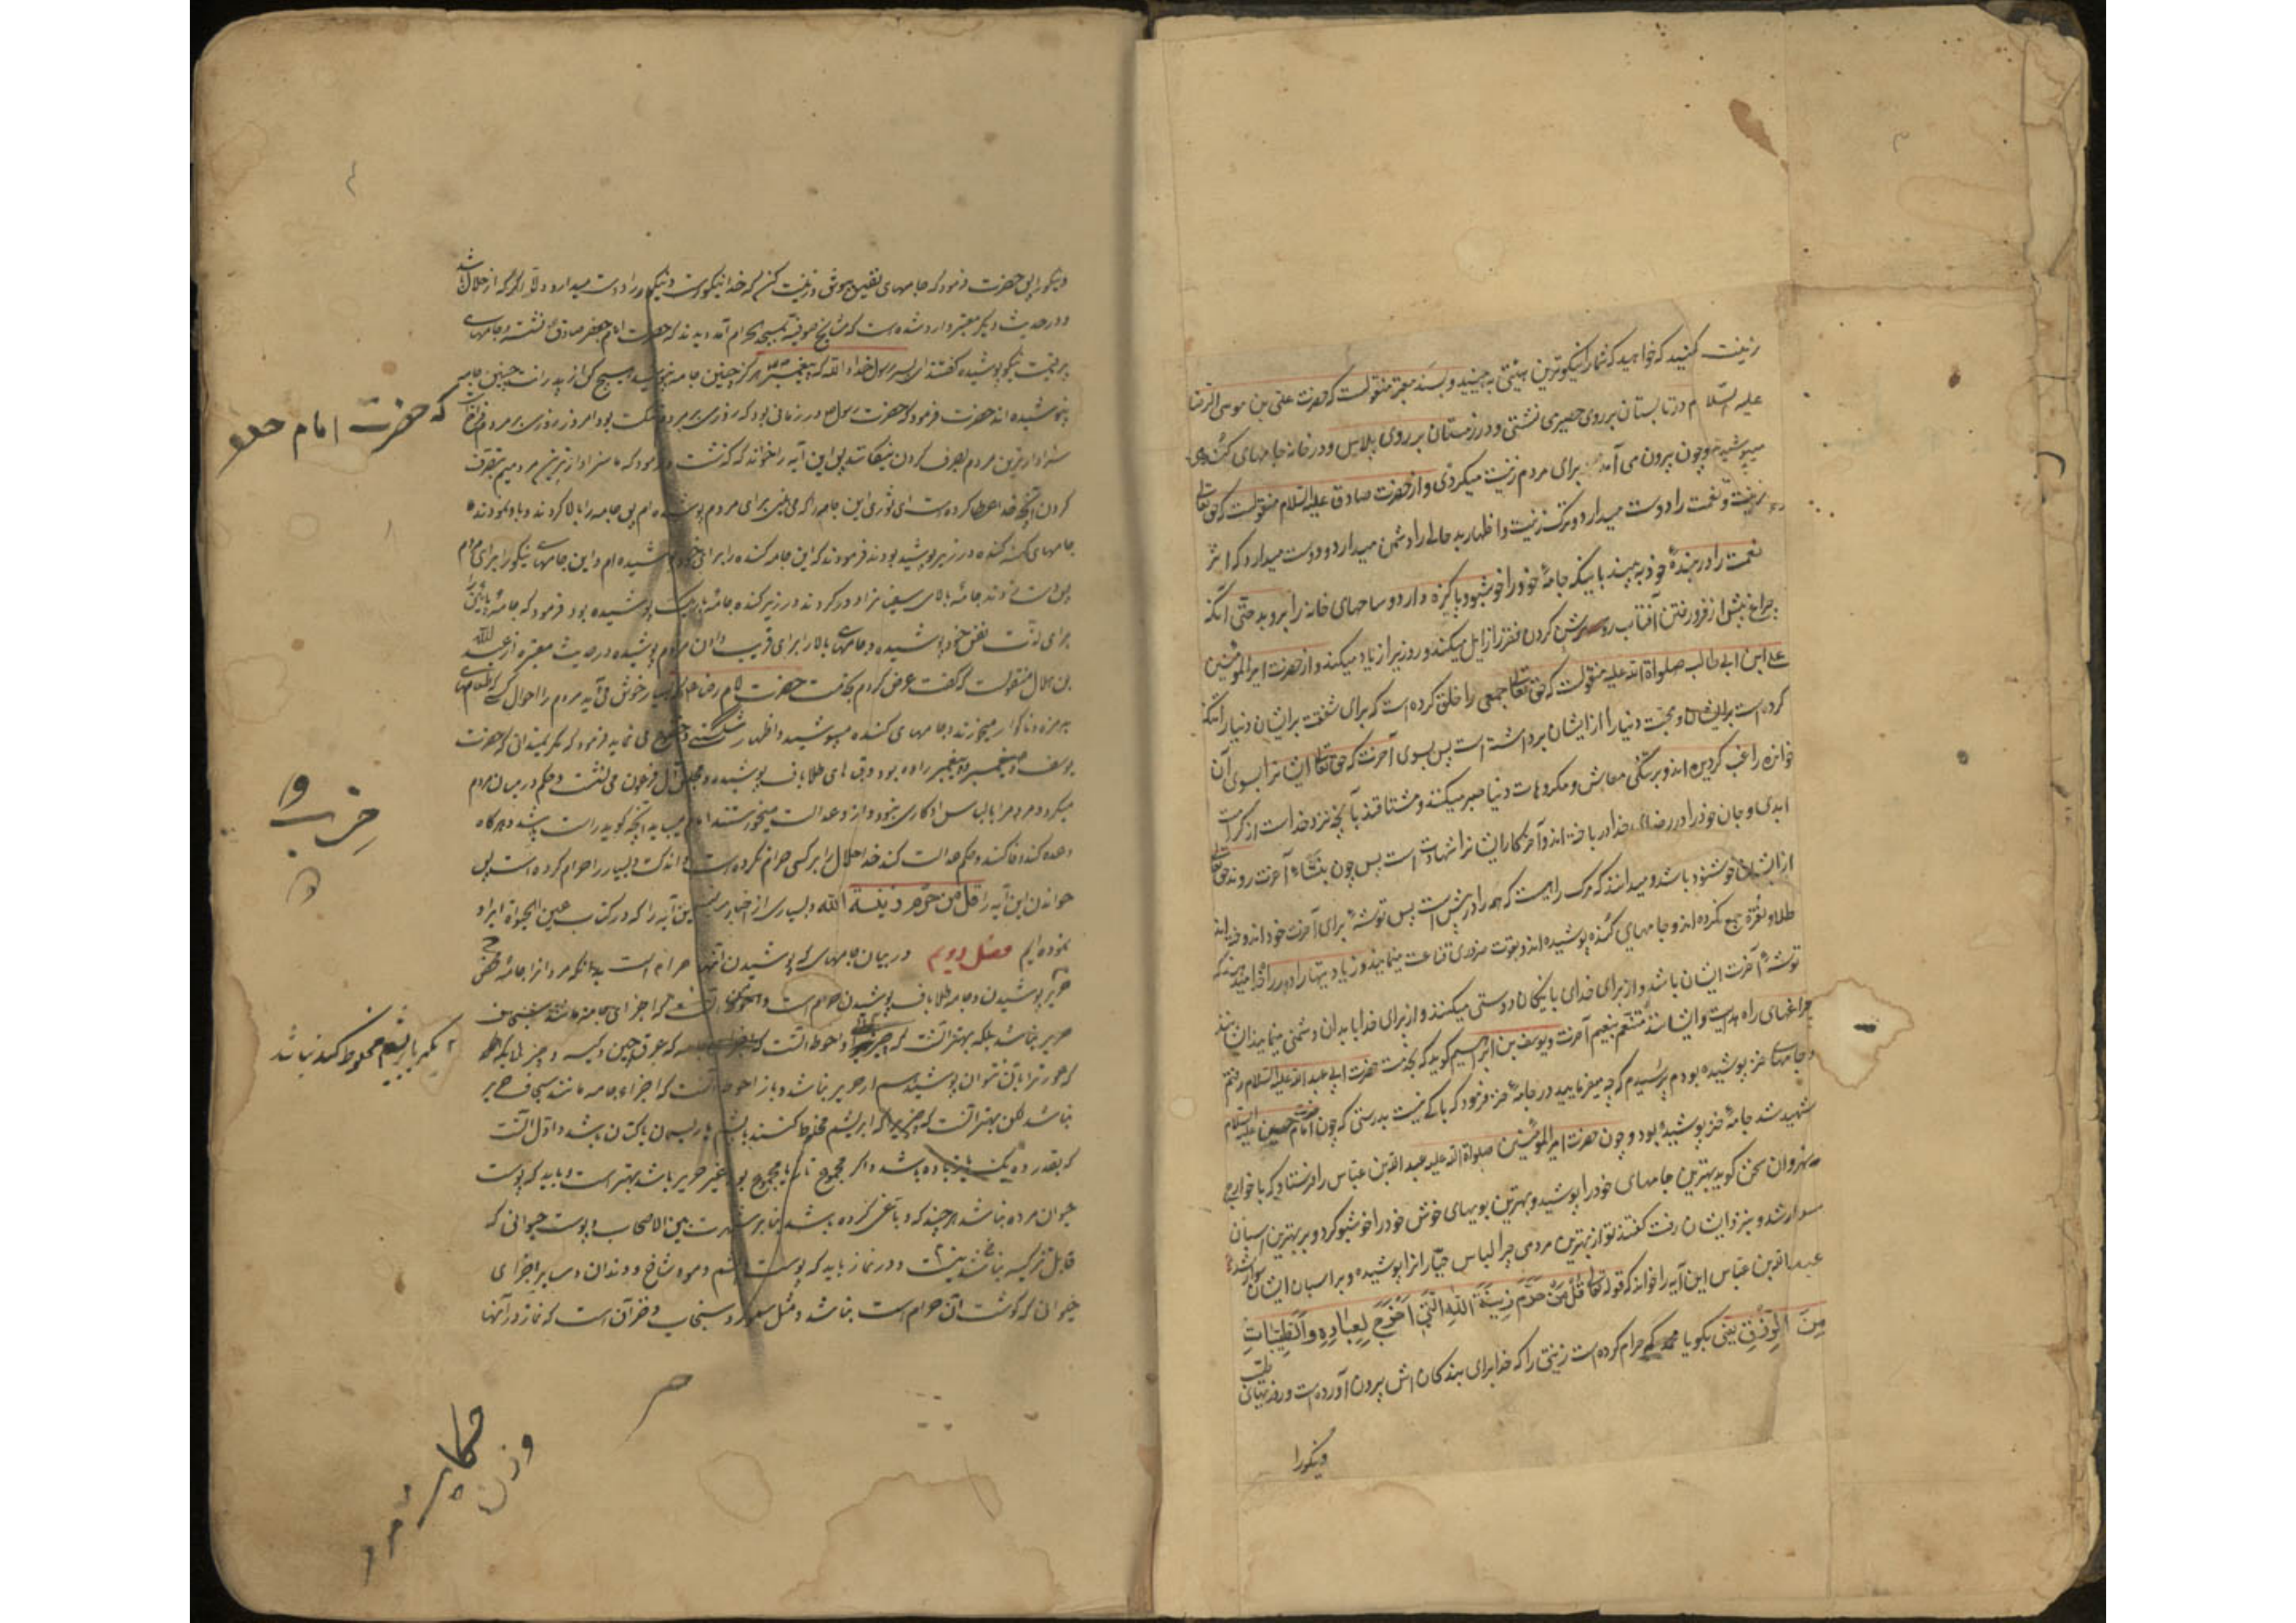 زینت کنید که خواهید که شما را نیکوترین هیئتی به بینید و بسند معتبر منقولست که حضرت علی بن موسی الرضا
علیه السّلام در تابستان بر روی حصیری نشستی و در زمستان بر روی پلاس و در خانه جامهای کنده
میپوشید و چون بیرون می آمد برای مردم زینت میکردی و از حضرت صادق علیه السلام منقولست که حق تعالی
زینت و نعمت را دوست میدارد و ترک زینت و اظهار بد حالی را دشمن میدارد و دوست میدارد که اثر
نعمت را در بندهٔ خود به بیند باینکه جامهٔ خود را خوشبو و پاکیزه دارد و ساحهای خانه را بروبد حتّی آنکه
چراغ پیش از فرو رفتن آفتاب روشن کردن فقر زا زایل میکند و روزیرا زیاد میکند و از حضرت امیر المؤمنین
علی ابن ابی طالب صلواة الله علیه منقولست که حق تعالی جمعی را خلق کرده است که برای شفقت بر ایشان دنیا را تنگ
کرده است بر ایشان و محبّت دنیا را از ایشان برداشته است پس بسوی آخرت که حق تعالی ایشانرا بسوی آن
خوانده راغب گردیده اند و بر تنگی معاش و مکروهات دنیا صبر میکنند و مشتاقند بآنچه نزد خداست از کرامت
ابدی و جان خود را در رضای خدا در باخته اند و آخر کار ایشانرا شهادت است پس چون بنشاءٔ آخرت روند حق تعالی
از ایشان خوشنود باشد و میدانند که مرک راهیست که همه را در پیش است پس توشهٔ برای آخرت خود اندوخته اند
طلا و نقره جمع نکرده اند و جامهای کنده پوشیده اند و بقوت ضروری قناعت مینمایند و زیادیها را در راه خدا میدهند که
توشهٔ آخرت ایشان باشد و از برای خدای با نیکان دوستی میکنند و از برای خدا با بدان دشمنی مینمایند ایشانند
چراغهای راه هدایت و ایشانند متنعّم بنعیم آخرت و یوسف بن ابراهیم گوید که بخدمت حضرت ابی عبد الله علیه السلام رفتم
و جامهای خز پوشیده بودم پرسیدم که چه میفرمایید در جامهٔ خز فرمود که باکی نیست بدرستی که چون حضرت امام حسین علیه السلام
شهید شد جامهٔ خز پوشیده بود و چون حضرت امیر المؤمنین صلواة الله علیه عبد الله بن عباس را فرستاد که با خوارج
نهروان سخن گوید بهترین جامهای خود را پوشید و بهترین بویهای خوش خود را خوشبو کرد و بر بهترین اسبان
سوار شد و بنزد ایشان رفت گفتند تو از بهترین مردمی چرا لباس جبّارانرا پوشیده و بر اسبان ایشان سوار شده
عبد الله بن عباس این آیه را خواند که قوله تعالی قُلْ مَنْ حَرَّمَ زِینَةَ اللهِ الَّتِی اَخْرَجَ لِعِبادِهِ وَالطَّیِّباتِ
مِنَ الرِّزْقِ یعنی بگو یا محمد که حرام کرده است زینتی را که خدا برای بندگان اش بیرون آورده است و روزیهای طیّب
و نیکو را
و نیکو را پس حضرت فرمود که جامهای نفیس بپوش و زینت کن که خدا نیکوست و نیکو را دوست میدارد و لیکن که از حلال باشد
و در حدیث دیگر معتبر وارد شده است که مشایخ صوفیّه بمسجد حرام آمدند دیدند که حضرت امام جعفر صادق نشسته و جامهای
پر قیمت نیکو پوشیده گفتند ای پسر رسول خدا والله که پیغمبر هرگز چنین جامه نپوشید و هیچ کس از پدرانت چنین جامه
نپوشیده اند حضرت فرمود که حضرت رسول در زمانی بود که روزی بر مردم تنگ بود و امروز روزی بر مردم فراخ
که حضرت امام
سزاوارترین مردم بصرف کردن نیکانند پس این آیه را خواند که گذشت و فرمود که ما سزاوارترین مردمیم بتصرف
کردن آنچه خدا عطا کرده است ای ثوری این جامه را که می بینی برای مردم پوشیده ام پس جامه را بالا کردند و باو نمودند
جامهای کنده در زیر پوشیده بودند فرمودند که این جامه کنده را برای خود پوشیده ام و این جامهای نیکو را برای مردم
برای لذّت نفس خود پوشیده و جامهای بالا را برای فریب دادن مردم پوشیده و در حدیث معتبر از عبد الله
بن هلال منقولست که گفت عرض کردم بخدمت حضرت امام رضا که بسیار خوش می آید مردم را احوال کسی که طعامهای
بیمزه و ناگوار میخورند و جامهای کنده میپوشند و اظهار شکستگی و خشوع می نماید فرمود که مگر نمیدانی که حضرت
یوسف پیغمبر و پیغمبر زاده بود و قبهای طلاباف پوشیده و در مجلس آل فرعون می نشست و حکم در میان مردم
میکرد و مردم را بالباس او کاری نبود و از او عدالت میخواستند امام میباید آنچه گوید راست باشد و هرگاه
وعده کند وفا کند و حکم عدالت کند خدا حلال را بر کسی حرام نکرده است و اندک و بسیار را حرام کرده است پس
خواندن این آیه را قل من حرّم زینة الله و بسیاری از اخبار در تفسیر این آیه را که در کتاب عین الحیوة ایراد
نموده ایم فصل دویم در بیان جامهای که پوشیدن آنها حرام است بدانکه مردانرا جامهٔ محض
حریر پوشیدن و جامه طلاباف پوشیدن حرام است و احوط آنست که اجزای جامه مانند سنجاف
حریر نباشد بلکه بهتر آنست که و احوط آنست که عرقچین و کیسه و چیزهائیکه
که عورترا بآن نتوان پوشید هم از حریر نباشد و باز احوط آنست که اجزاء جامه مانند سجاف حریر
نباشد لکن بهتر آنست که چیزیرا که ابریشم مخلوط کنند باپشم یا ریسمان یا کتان باشد و اوّل آنست
که بقدر ده یک یا زیاده باشد و اگر مجموع تار یا مجموع پود غیر حریر باشد بهتر است و باید که پوست
حیوان مرده نباشد هر چند که دباغی کرده باشند بنا بر شهرت بین الاصحاب و پوست حیوانی که
قابل تزکیه نباشد و در نماز باید که پوست و پشم و مو و شاخ و دندان و سایر اجزای
حیوانی که گوشت آن حرام است نباشد و مثل سمور و سنجاب و خز آن است که نماز در آنها